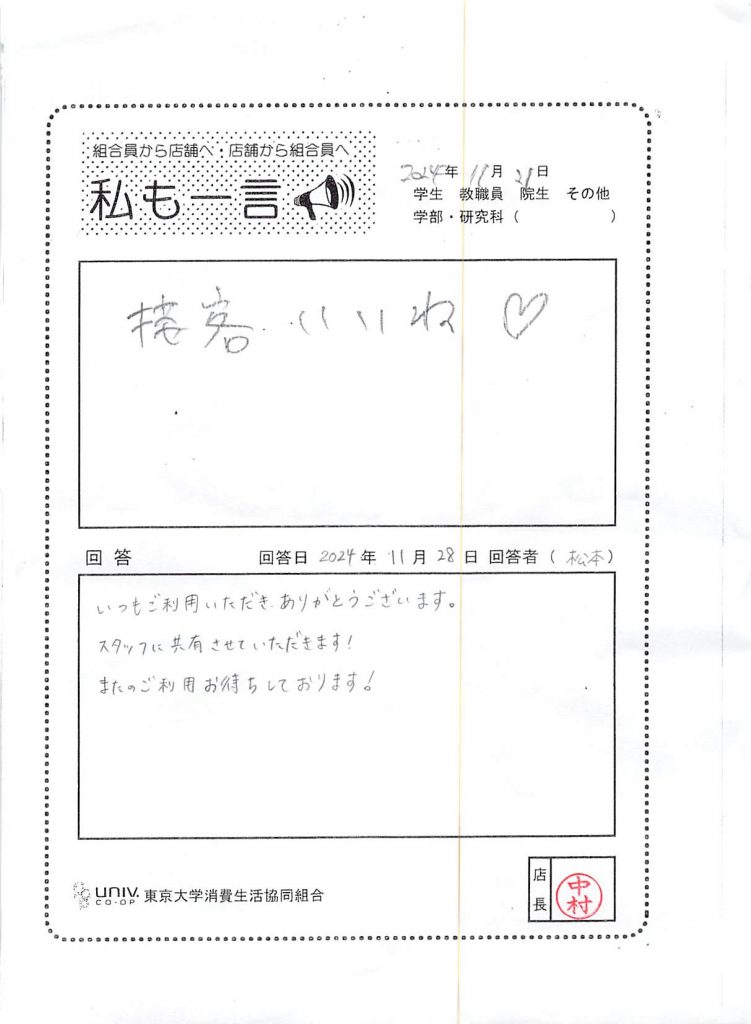 組合員から店舗へ・店舗から組合員へ
私も一言
2024年 11月 21日
学生 教職員 院生 その他
学部・研究科（ ）
接客いいね♡
回答 回答日 2024年 11月 28日 回答者（松本）
いつもご利用いただき、ありがとうございます。
スタッフに共有させていただきます!
またのご利用お待ちしております!
UNIV. CO-OP 東京大学消費生活協同組合
店長 中村